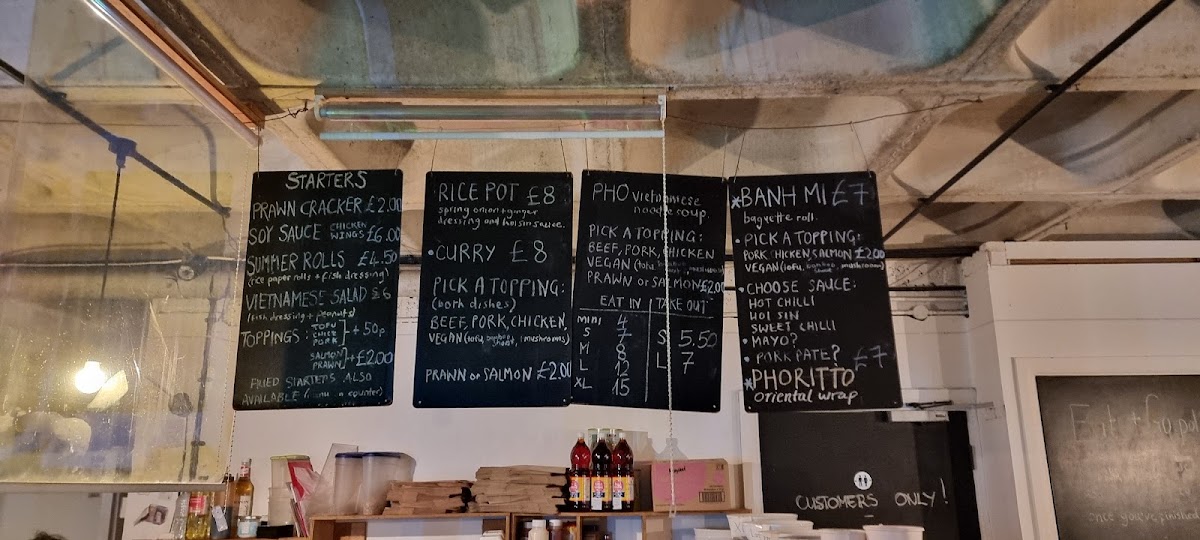 STARTERS
PRAWN CRACKER £2.00
SOY SAUCE CHICKEN WINGS £6.00
SUMMER ROLLS £4.50
(rice paper rolls + fish dressing)
VIETNAMESE SALAD £6
(fish dressing + peanuts)
TOPPINGS: TOFU
PORK + 50p
SALMON
PRAWN + £2.00
FRIED STARTERS ALSO
AVAILABLE counter)
RICE POT £8
spring onion + ginger
dressing and hoisin sauce.
• CURRY £8
PICK A TOPPING:
(both dishes)
BEEF, PORK, CHICKEN,
VEGAN (tofu, bamboo shoot, mushrooms)
PRAWN OR SALMON £2.00
PHO vietnamese
noodle soup.
PICK A TOPPING:
BEEF, PORK, CHICKEN
VEGAN (tofu, mushrooms)
PRAWN OR SALMON £2.00
EAT IN TAKE OUT
mini 4
S 7 S 5.50
M 8 L 7
L 12
XL 15
*BANH MI £7
baguette roll.
• PICK A TOPPING:
PORK CHICKEN, SALMON £2.00
VEGAN (tofu, bamboo shoot, mushrooms)
• CHOOSE SAUCE:
HOT CHILLI
HOI SIN
SWEET CHILLI
• MAYO?
• PORK PATE?
*PHORITTO £7
Oriental wrap
CUSTOMERS ONLY!
Eat
once you've finished